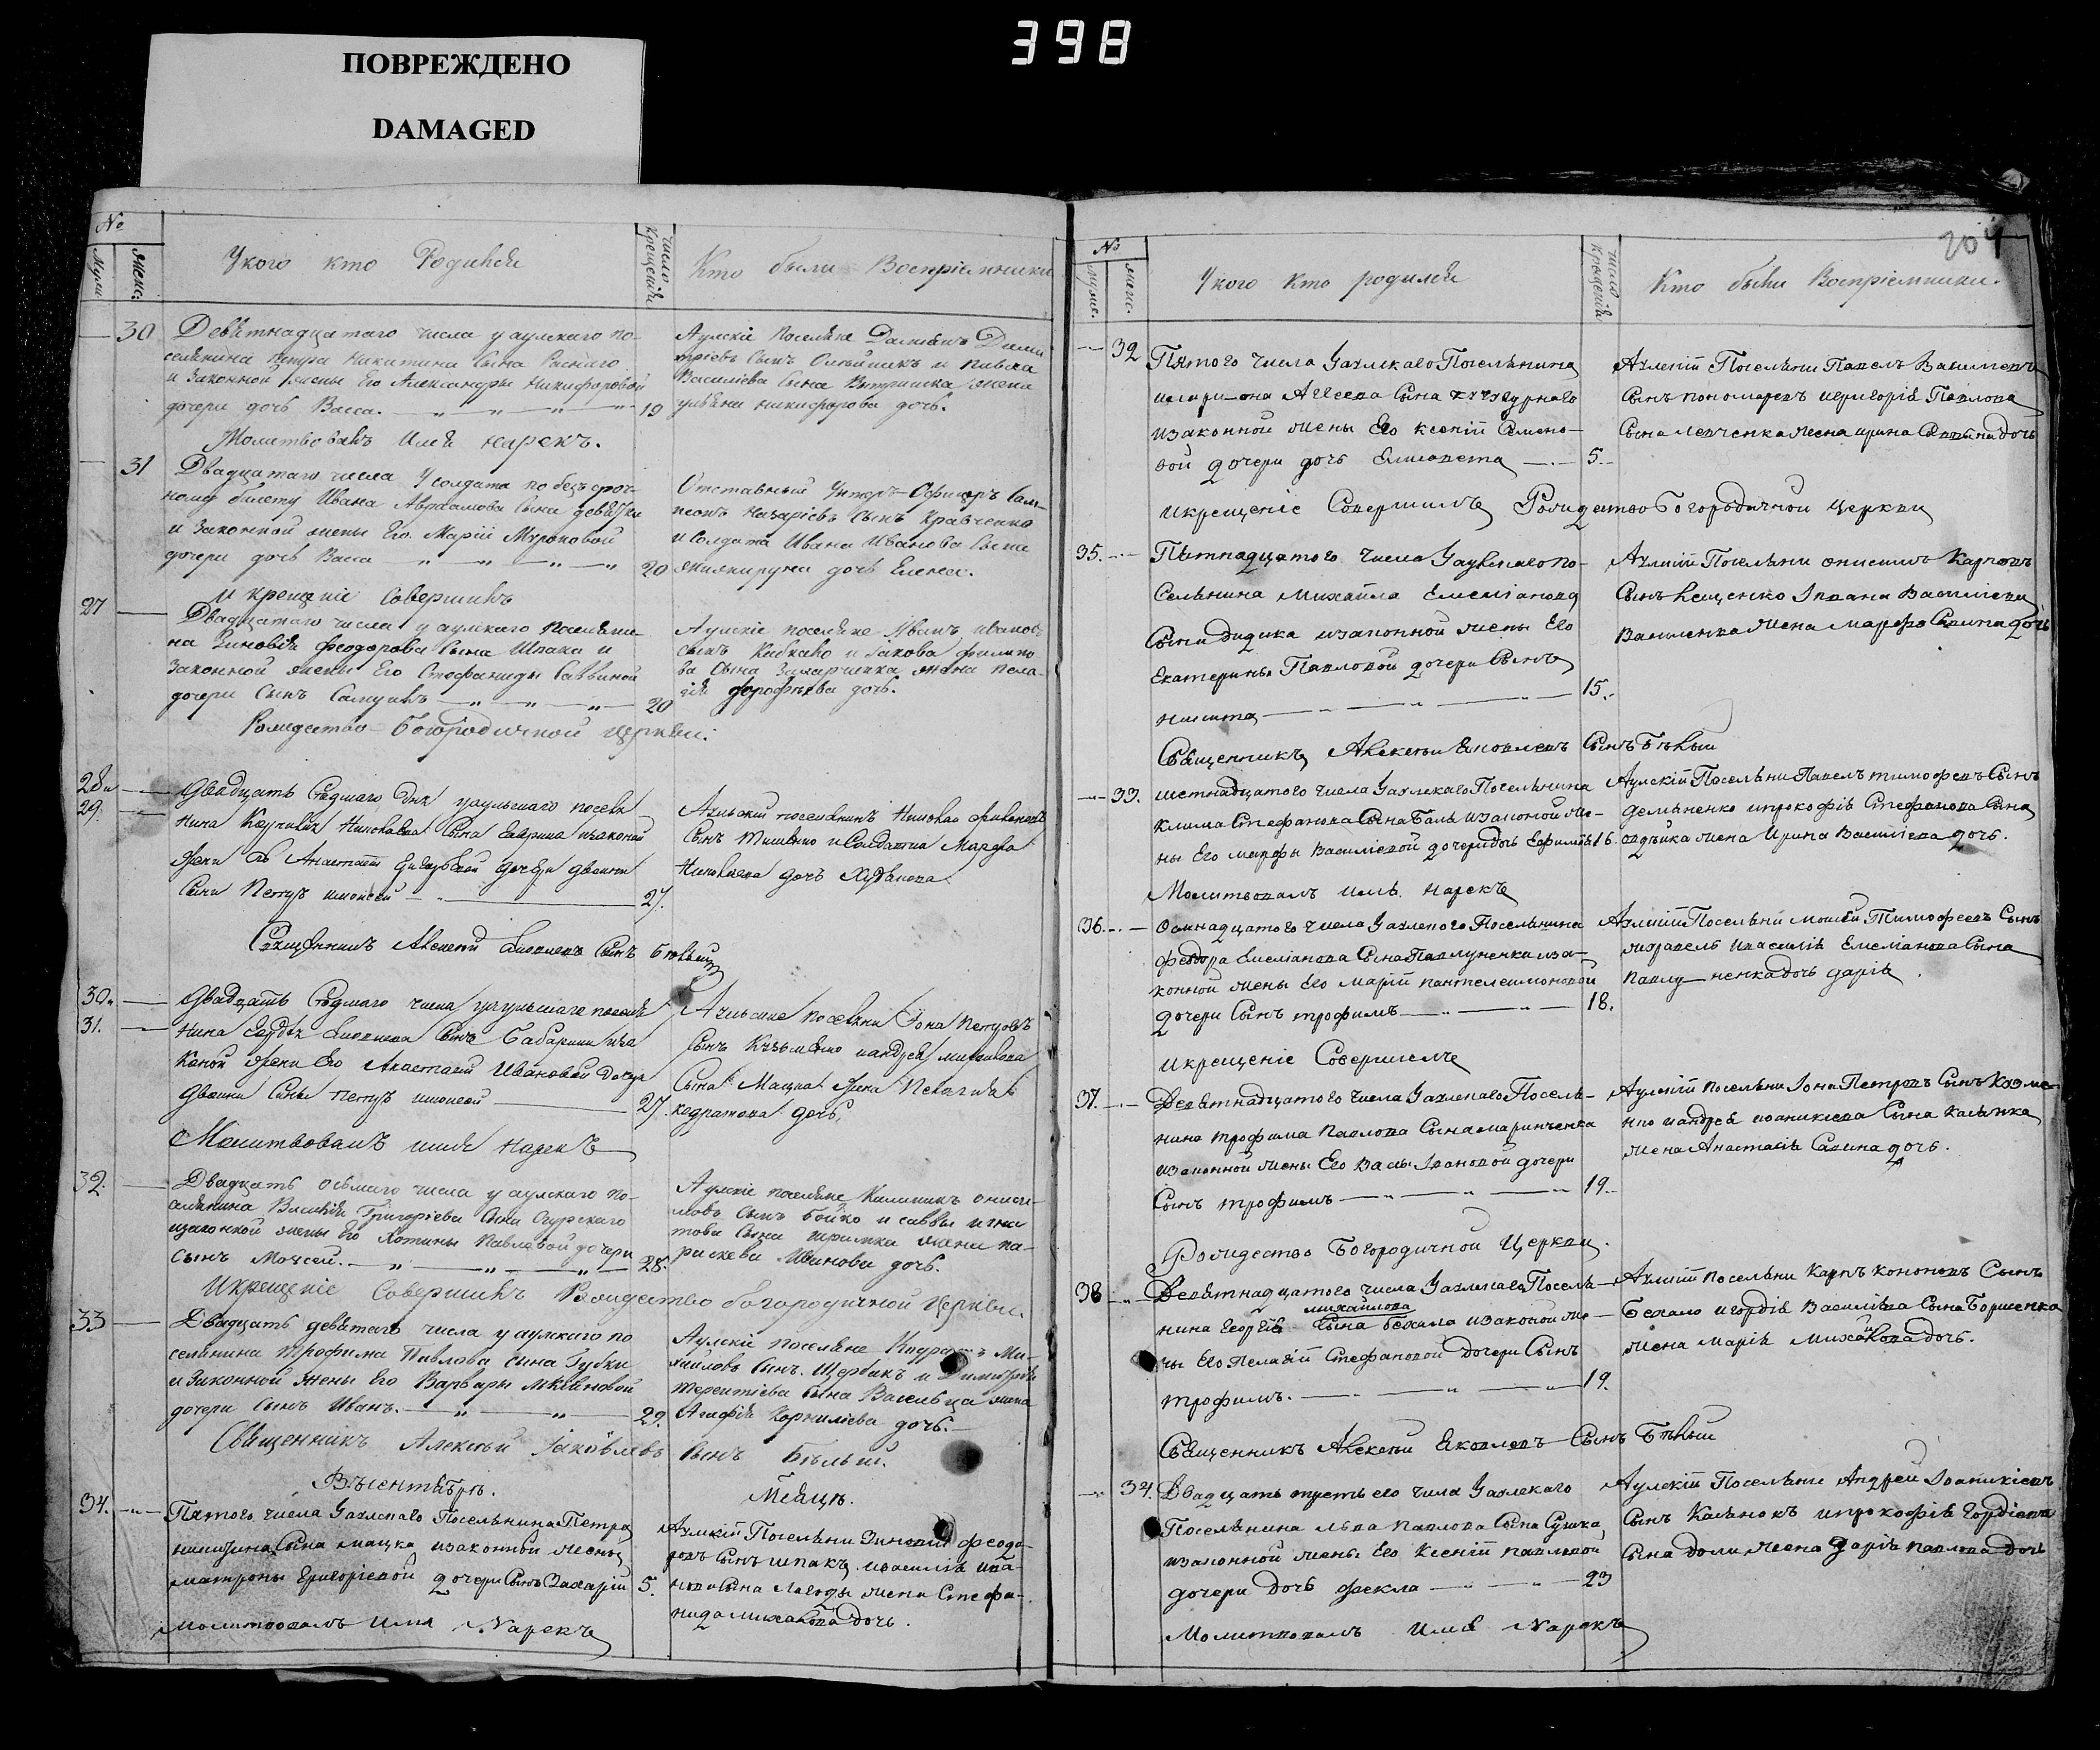 398
ПОВРЕЖДЕНО
DAMAGED
№
Муж.
Женс.
У кого кто Родился
число крещенія
Кто были Воспріемники
30
Девятнадцатаго числа у аулскаго по-
селянина Петра Никитина Сына
и Законной жены Его Александры Никифоровой
дочери дочь Васса. 19
Аулскіе Поселяне Дами
тріевъ Сынъ Олейникъ и Павла
Василіева Сына жена
Уліяна Никифорова дочь.
Молитвовалъ Имя нарекъ.
31
Двадцатаго числа У солдата по безсроч-
ному билету Ивана Авраамова Сына
и Законной жены Его Маріи Мироновой
дочери дочь Васса 20
Отставный Унтеръ-Офицеръ Сам-
псонъ Назаріевъ Сынъ Кравченко
и Солдата Ивана Иванова Сына
дочь Елена.
И крещеніе Совершилъ
27
Двадцатаго числа у аулскаго поселяни-
на Зиновія Феодорова Сына Шпака и
Законной жены Его Стефаниды Саввиной
дочери Сынъ Самуилъ 20
Аулскіе поселяне Иванъ Ивановъ
сынъ и Іакова Филипо
ва Сына Захарченка жена Пела-
гія Дорофѣева дочь.
Рождество-Богородичной Церкви:
28 и
29.
Двадцать Седмаго Дня у аульскаго поселя
нина Николаева Сына Гавриша и законой
жены Анастасіи дочери двоини
Сыны Петръ и Моисей 27.
Аульскій поселянинъ Николай Филиповъ
Сынъ Тишенко и Солдатка Марфа
Николаева дочь
Священникъ Алексей Яковлевъ Сынъ Белый
30.
31.
Двадцать Седмаго числа у аульскаго поселя
нина Яковлева Сына и за
коной жены Его Анастасіи Ивановой дочери
двоини Сыны Петръ и Моисей 27.
Аульскіе поселяни Іона Петровъ
Сынъ Кузьменко и Андрея
Сына Мацка жена Пелагія
Кодратова дочь.
Молитвовалъ имя нарекъ
32.
Двадцать осьмаго числа у аулскаго по-
селянина Василія Григоріева Сына Сурскаго
и законной жены Его Хотины Павловой дочери
сынъ Моѵсей. 28.
Аулскіе поселяне Калиникъ Ониси-
мовъ Сынъ Бойко и Саввы Игна
това Сына жена Па-
раскева Иванова дочь.
И крещеніе Совершилъ Рождество богородичной церкви.
33
Двадцать девятаго числа у аулскаго по
селянина Трофима Павлова Сына Губки
и Законной жены Его Варвары
дочери Сынъ Иванъ. 29.
Аулскіе поселяне Кодратъ Ми-
хайловъ Сынъ Щербакъ и Димитрія
Терентіева Сына жена
Агафія Корниліева дочь.
Священникъ Алексѣй Іаковлевъ Сынъ Бѣлый.
Въ сентябрѣ. Месяцѣ.
34.
Пятого числа У аулскаго Поселянина Петра
Никитина Сына Мацка и законной жены
Матроны Григоріевой дочери Сынъ Захарій 5.
Аулскій Поселяни Зиновій Феодо-
ровъ Сынъ Шпакъ и Василія Ива-
нова Сына Лагоды жена Стефа-
нида Михайлова дочь.
Молитвовалъ Имя Нарекъ
204
№
муже.
женс.
У кого кто родился
число крещенія
Кто были Воспріемники.
32
Пятого числа У аулскаго Поселянина
Илари-она Агеева Сына
и законной жены Его Ксеніи Семено-
вой дочери дочь Елисавета 5.
Аулскій Поселяни Павелъ Василіевъ
Сынъ Пономаревъ и Григорія Павлова
Сына Левченка жена Ирина Саввина дочь
и крещеніе Совершилъ Рождество Богородичной церкви
35.
Пятнадцатого числа У аулскаго По-
Селянина Михайла Емеліанова
Сына Дидика и законной жены Его
Екатерины Павловой дочери Сынъ
Никита 15.
Аулскій Поселяни Онисимъ Карповъ
Сынъ Кещенко Ивана Василіева
Василенка жена Марфа Саввина дочь
Священникъ Алексѣй Яковлевъ Сынъ Бѣлый
33.
шестнадцатого числа У аулскаго Поселянина
Клима Стефанова Сына Баля и законой же-
ны Его Марфы Василіевой дочери дочь Ефимія 16.
Аулскій Поселяни Павелъ Тимофеевъ Сынъ
Демьяненко и Прокофія Стефанова Сына
жена Ирина Василіева дочь.
Молитвовалъ имя нарекъ
36.
Осмнадцатого числа У аулскаго Поселянина
Феодора Емеліанова Сына Павлученка и за-
конной жены Его Маріи Пантелеимоновой
дочери Сынъ Трофимъ 18.
Аулскій Поселяни Моисей Тимофеевъ Сынъ
Журавель и Василія Емеліанова Сына
Павлу-ченка дочь Дарія.
и крещеніе Совершилъ
37.
Девятнадцатого числа У аулскаго Поселя-
нина Трофима Павлова Сына Маринченка
и законной жены Его Васы Ивановой дочери
Сынъ Трофимъ 19.
Аулскій Поселяни Іона Петровъ Сынъ Козме-
нко и Андрея Іоаникіева Сына Касьянка
жена Анастасія Савина дочь.
Рождество Богородичной Церкви.
38
Девятнадцатого числа У аулскаго Поселя-
михайлова
нина Георгія Сына Бехала и законой же-
ны Его Пелагіи Стефановой дочери Сынъ
Трофимъ. 19.
Аулскій Поселяни Карпъ Кононовъ Сынъ
Бехало и Гордія Василіева Сына Борщенка
жена Марія Михайлова дочь.
Священникъ Алексѣй Яковлевъ Сынъ Бѣлый
34.
Двадцать третьего числа У аулскаго
Поселянина Льва Павлова Сына Сушка
и законной жены Его Ксеніи Павловой
дочери дочь Фекла 23
Аулскій Поселяни Андрей Іоаникіевъ
Сынъ Касьянокъ и Прокофія Гордіева
Сына Доли жена Дарія Павлова дочь
Молитвовалъ Имя Нарекъ